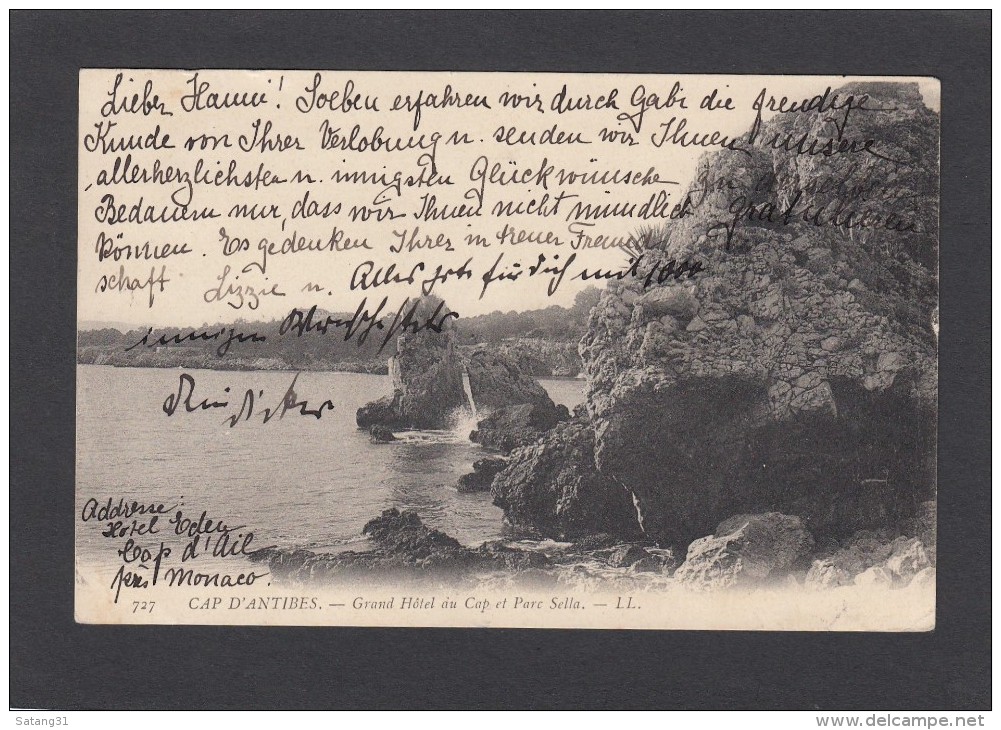 Lieber Hanni! Soeben erfahren wir durch Gabi die freudige
Kunde von Ihrer Verlobung u. senden wir Ihnen unsere
allerherzlichsten u. innigsten Glückwünsche
Bedauern nur, dass wir Ihnen nicht mündlich gratulieren
können. Es gedenken Ihrer in treuer Freund-
schaft Lizzie u. Alles Gute für Dich mit 1000
innigen
Addresse:
Hotel Eden
Cap d'Ail
près Monaco.
727 CAP D'ANTIBES. — Grand Hôtel du Cap et Parc Sella. — LL.
Satang31
http://www.delcampe.net